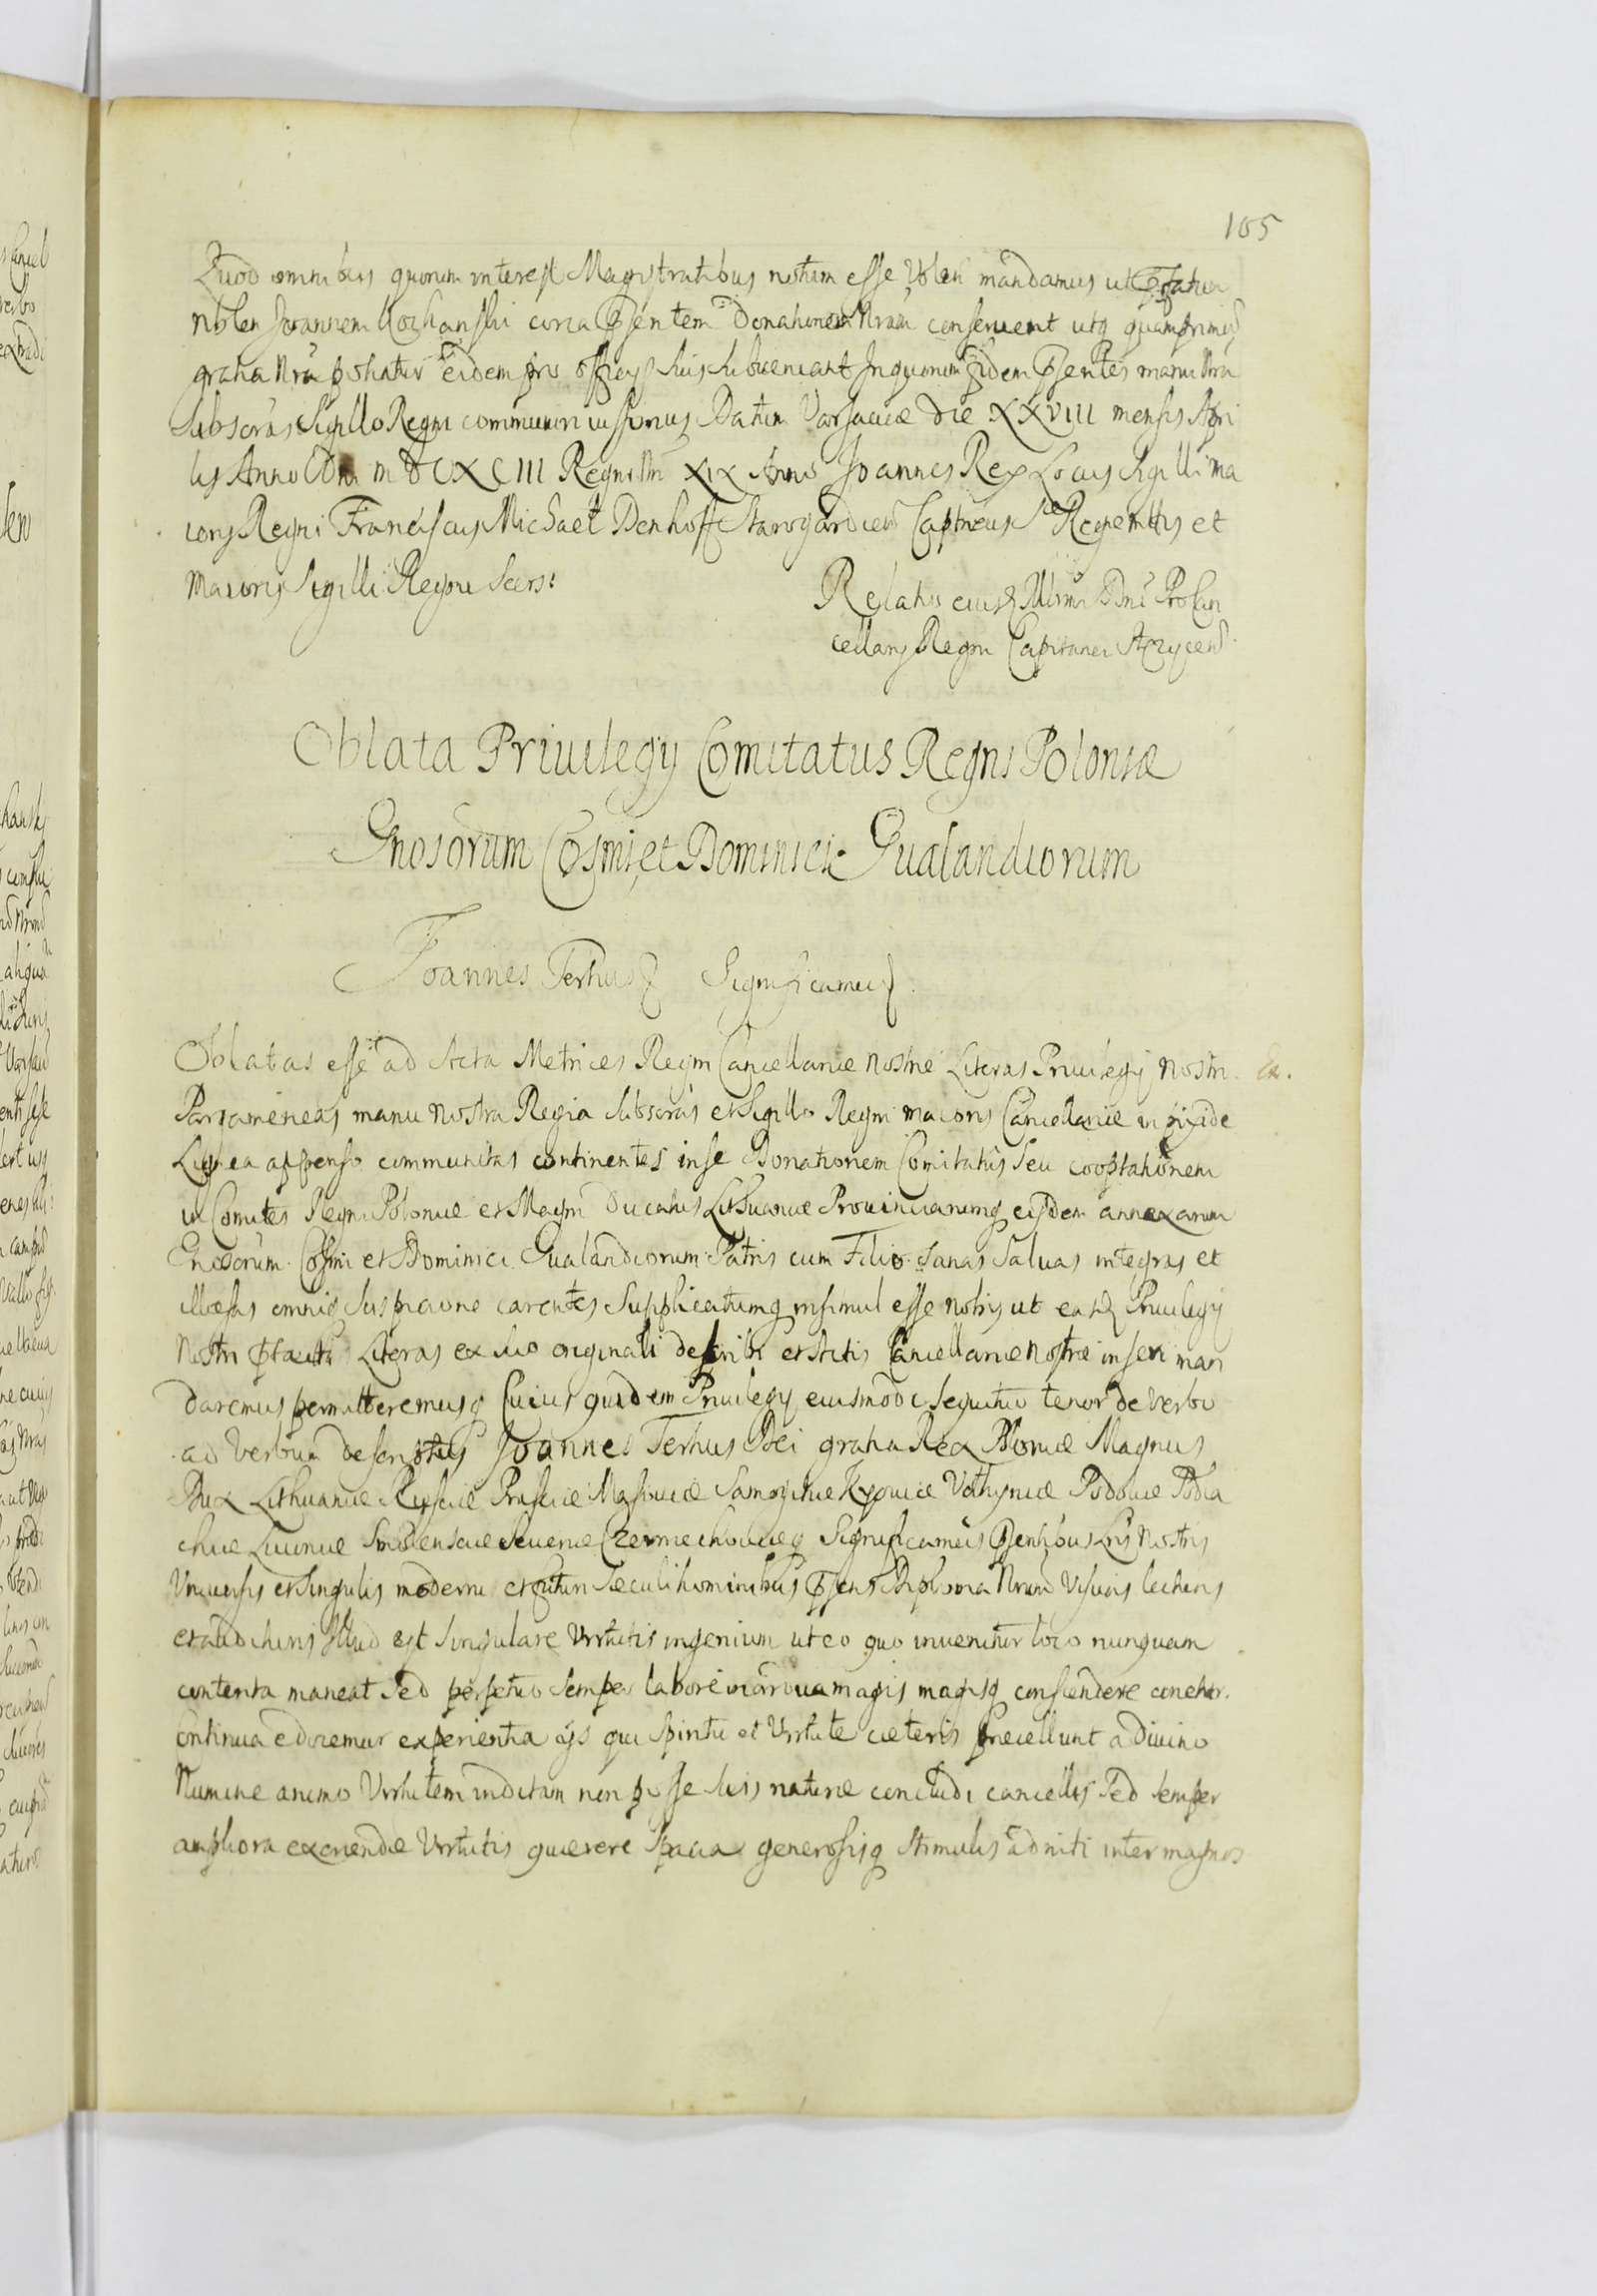 105
Quod omnibus quorum interest Magistratibus notum esse Volen mandamus ut
Nblen Joannem Kochanski circa Psentem Donationem Nram conseruent utq quamprimu
gratia Nra potiatur eidem pro officys suis subueniant In quorum fidem Psentes manu Nra
Subscras Sigillo Regni communiri iussimus Datum Varsauiæ die XXVIII mensis Apri
lis Anno Dni MDCXCIII Regni Nri XIX Anno Joannes Rex Locus Sigilli ma
ioris Regni Franciscus Michael Denhoff Starogardien Captneus Regentus et
Maioris Sigilli Regni Secrs:
Relatio eiusd Illmi Dni ProCan
cellary Regni Capitanei
Oblata Priuilegy Comitatus Regni Poloniæ
Gnosorum Cosmi et Dominici Gualandiorum
Joannes Tertius Significamus
Oblatas esse ad Acta Metrices Regni Cancellariæ Nostræ Literas Priuilegy Nostri
Pargameneas manu nostra Regia Subscras et Sigillo Regni maioris Cancellariæ in pixide
Lignea appenso communitas continentes in se Donationem Comitatus Seu cooptationem
in Comites Regni Poloniæ et Magni Ducatus Lithuaniæ Prouinciarumq eisdem annexarum
Gnosorum Cosmi et Dominici Gualandiorum Patris cum Filio Sanas Saluas integras et
illæsas omniq Suspicione carentes Supplicatumq insimul esse nobis ut easd Priuilegy
Nostri Literas ex suo originali describi et Actis Cancellariæ Nostræ inseri man
daremus permitteremusq Cuius quidem Priuilegy eiusmodi sequitur tenor de verbo
ad Verbum descriptus Joannes Tertius Dei gratia Rex Poloniæ Magnus
Dux Lithuaniæ Russiæ Prussiæ Masouiæ Samogitiæ Kyouiæ Volhyniæ Podoliæ Podla
chiæ Liuoniæ Smolensciæ Seueriæ Czerniechouiæq Significamus Psentibus Lris Nostris
Vniuersis et singulis moderni et futuri Sæculi hominibus Psens Diploma Nrum Visuris lecturis
et audituris Illud est Singulare Virtutis ingenium ut eo quo inuenitur loco nunquam
contenta maneat Sed perpetuo semper labore in ardua magis magisq conscendere conetur.
Continua edocemur experientia ijs qui Spiritu et Virtute cæteris præcellunt a Diuino
Numine animo Virtutem inditam non posse suis naturæ concludi cancellis Sed semper
ampliora exerendæ Virtutis quærere Spacia generosisq Stimulis adniti inter magnos